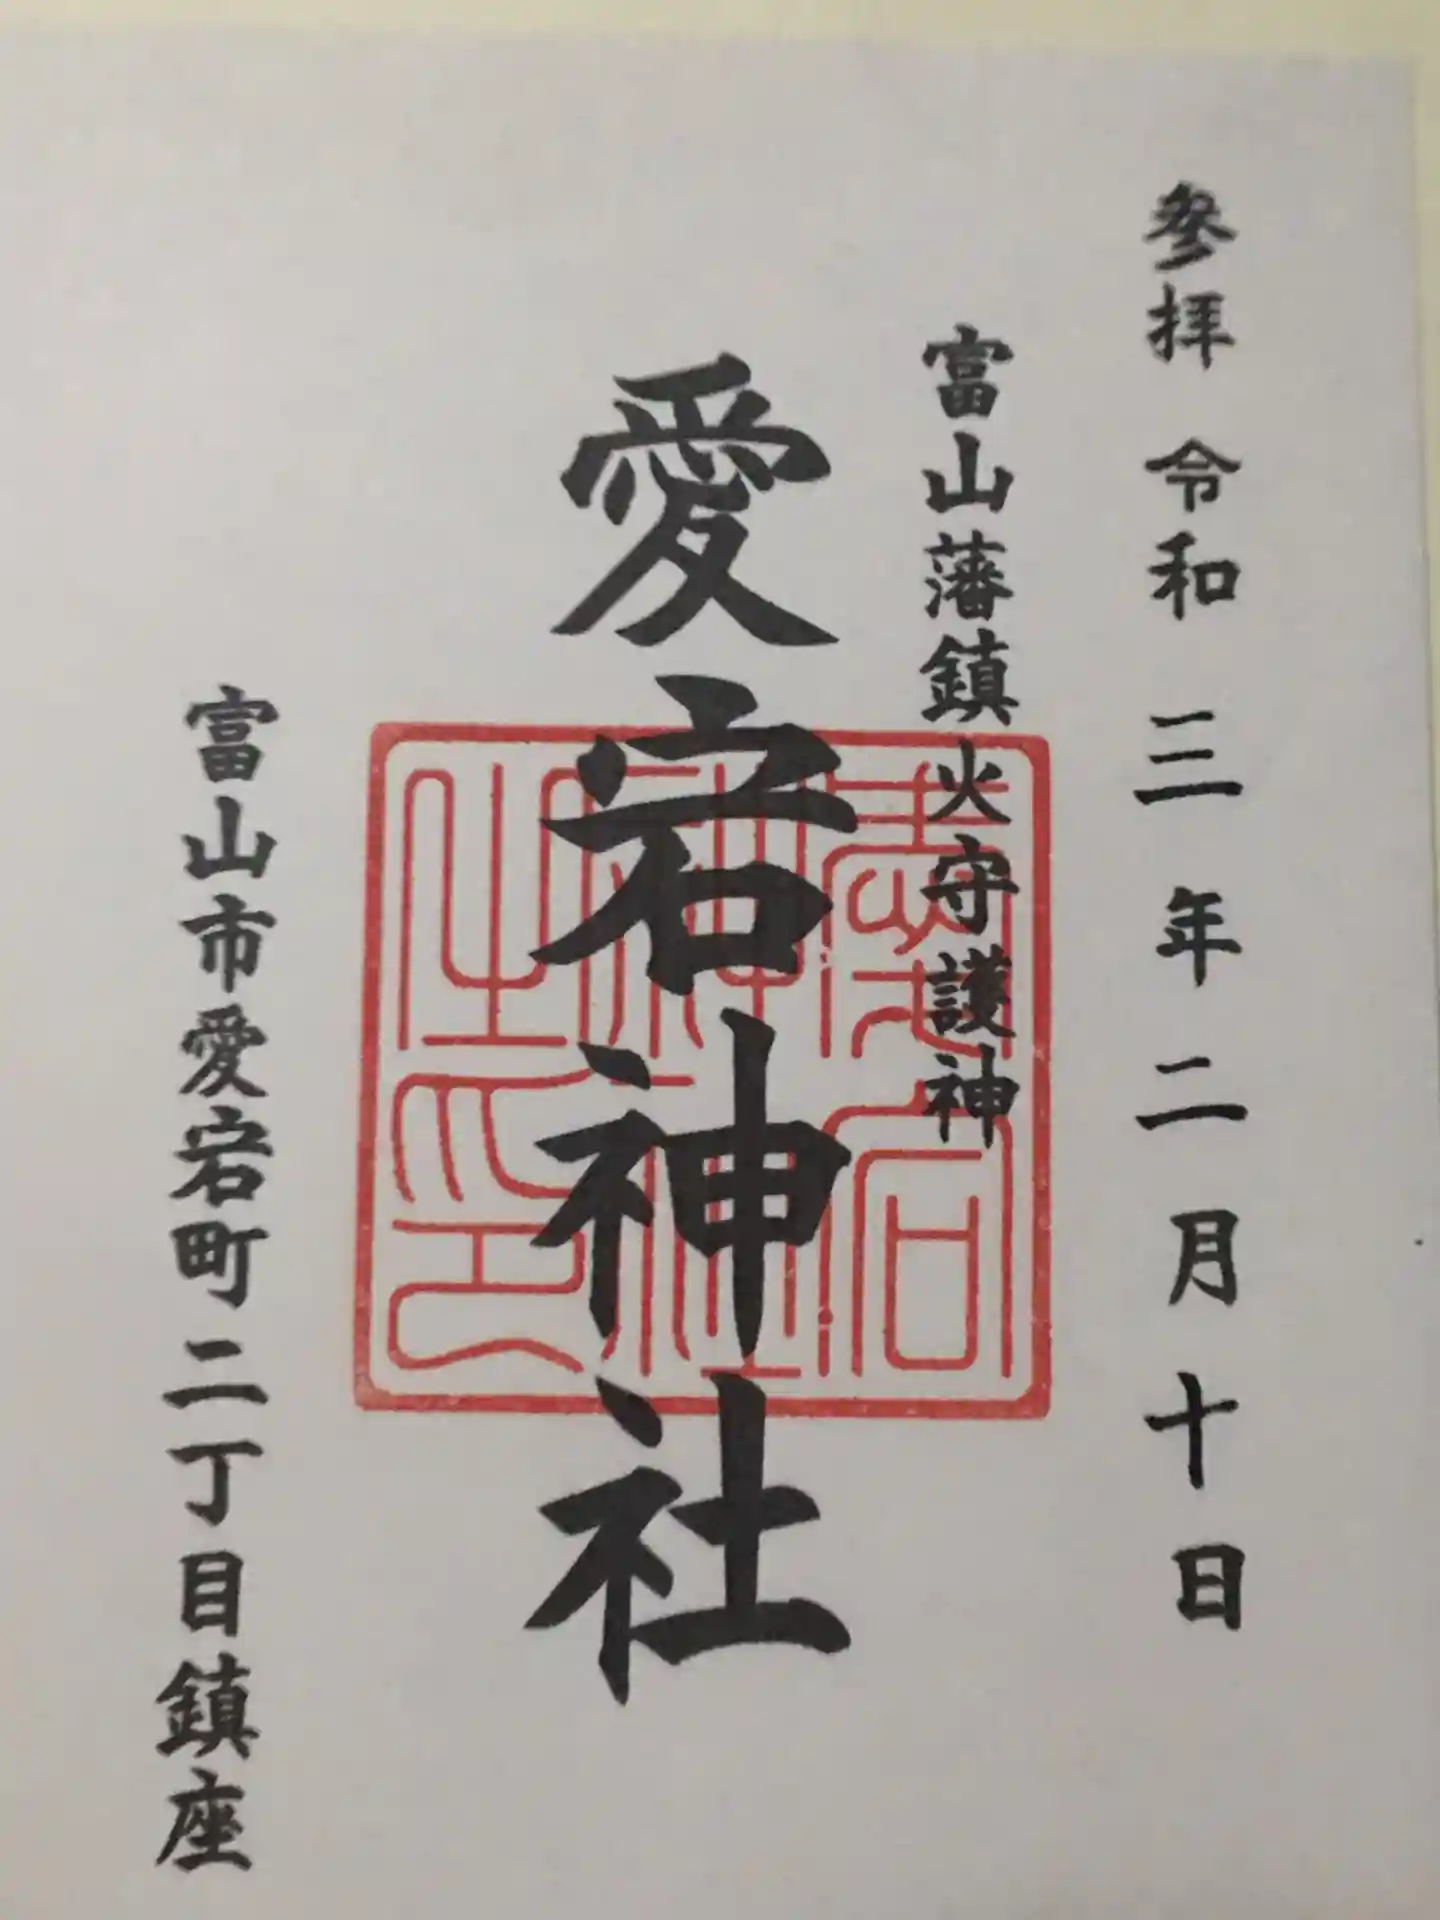 参拝 令和 三 年 二 月 十 日
富山藩鎮火守護神
愛宕神社
愛宕神社之印
富山市愛宕町二丁目鎮座